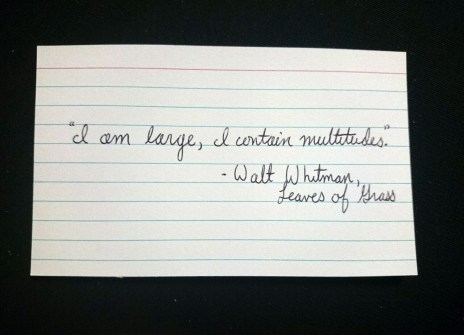 "I am large, I contain multitudes."
- Walt Whitman,
Leaves of Grass